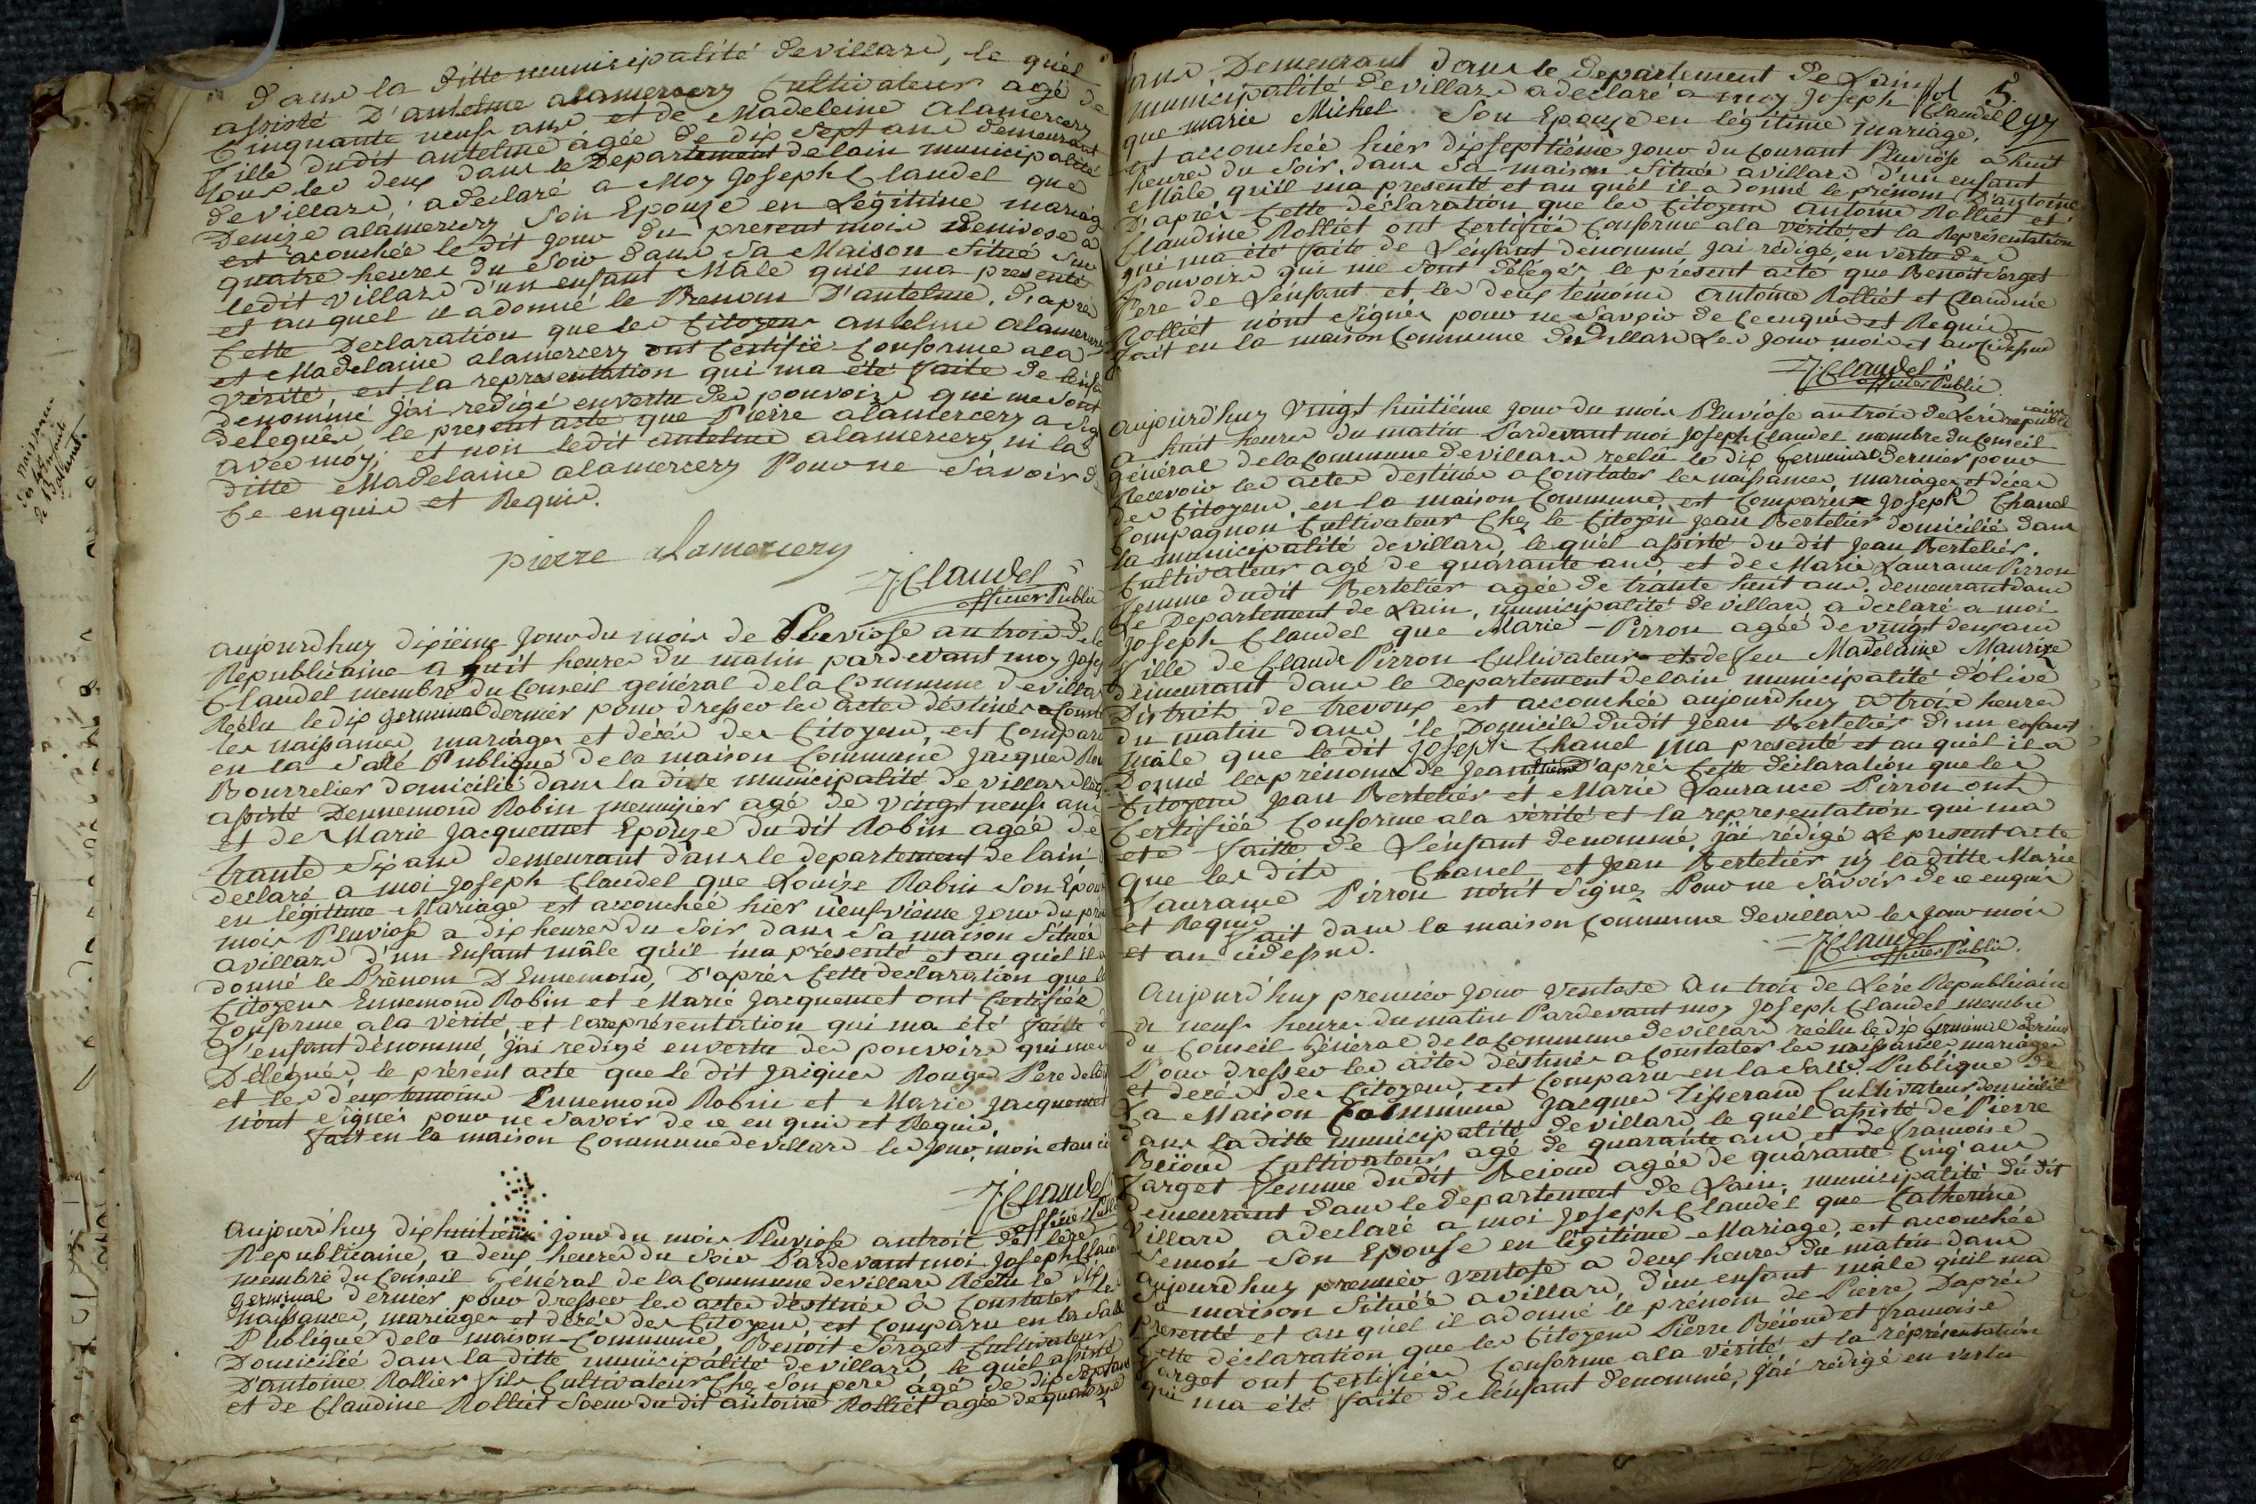 dans la ditte municipalité de villars, le quel
assisté D'antelme alamercery Cultivateur agé de
Cinquante neuf ans et de Madeleine alamercery
fille dudit antelme agée de dix sept ans demeurant
tous les deux dans le Departement de lain municipalité
de villars, a déclaré a Moy Joseph Claudel que
Denize alamercery Son Epouze en Légitime mariag
est acouchée le dit jour du present mois a
quatre heures du Soir dans Sa Maison Situé Sur
ledit villars d'un enfant Mâle qu'il ma presenté
et au quel il a donné le Prenom D'antelme, d'apres
Cette Declaration que les Citoyens antelme alamercery
et Madelaine alamercery ont Certifié Conforme ala
vérité, et la representation qui ma été faite de lenfa
denommé j'ai redigé en vertu des pouvoirs qui me sont
delegués le present acte que Pierre alamercery a Sig
avec moy, et non ledit antelme alamercery ni la
ditte Madelaine alamercery Pour ne Savoir d
Ce enquis et Requis.
pierre alamercery
J Claudel
officier Public
aujourdhuy dixiéme jour du mois de Pluviose an trois de le
Republicaine a huit heures du matin pardevant moy Josep
Claudel membre du Conseil général de la Commune de villar
Réélu le dix germinal dernier pour dresser les actes destinés a Const
les naissances, mariages et décés des Citoyens, est Comparu
en la Salé Publique de la maison Commune Jacques Rou
Bourrelier domicilié dans la dite municipalité de villars leq
assisté Dennemond Robin menuisier agé de vingt neuf ans
et de Marie Jacquemet Epouze du dit Robin agée de
trante Six ans demeurant dans le departement de lain
declaré a moi Joseph Claudel que Louize Rabin Son Epou
en légitime Mariage est accouchée hier neufvième jour du pré
mois Pluviose a dix heures du Soir dans Sa maison Située
avillars d'un Enfant mâle qu'il ma présenté et au quel il a
donné le Prénom D Ennemond, D'aprés Cette declaration que l
Citoyens Ennemond Robin et Marie Jacquemet ont Certifiée
Conforme ala Vérité, et la représentation qui ma été faite d
L'enfant dénommé, j'ai redigé en vertu des pouvoirs qui me
Délégués le présent acte que le dit Jacques Rouge Pere de l
et les deux temoins Ennemond Robin et Marie Jacquemet
n'ont signés pour ne Savoir de ce enquis et Requis,
fait en la maison Commune de villars les jour, mois et an ci
J Claudel
officier Public
aujourd'huy dixhuitiéme jour du mois Pluviose an trois de lére
Republicaine, a deux heures du Soir Pardevant moi Joseph Claud
membre du Conseil Général de la Commune de villars Réélu le dix
germinal dernier pour dresser les actes destinés a Constater le
naissances, mariages et décés des Citoyens est Comparu en la Salle
Publique dela maison Commune, Benoit Sorget Cultivateur
Domicilié dans la ditte municipalité de villars, le quel assisté
D'antoine Rollier fils Cultivateur Chez Son pere agé de dix sept ans
et de Claudine Rolliet Soeur du dit antoine Rolliet agée de quatorze
fol 5.
ans, Demeurant dans le departement de Lain
municipalité de villars a declaré a moy Joseph Claudel
que marie Michel Son Epouze en légitime mariage,
est accouchée hier dixseptiéme jour du Courant Pluviôse a huit
heures du Soir, dans Sa maison Située avillars d'un enfant
Mâle qu'il ma presenté et au quél il a donné le prénom D'antoine
D'aprés Cette déclaration que les Citoyens antoine Rolliet et
Claudine Rolliet ont Certifiés Conforme ala vérité et la Représentation
qui ma été faite de L'énfant denommé jai rédigé, en vertu des
Pouvoirs qui me Sont délégés le présent acte que Benoit Sorget
Pere de L'énfant et les deux témoins antoine Rolliét et Claudine
Rolliét n'ont Signés pour ne Savoir de Ce enquis et Requis
fait en la maison Commune de villars Les jour mois et an Cidessus
J Claudel
officier Public
aujourd'huy Vingt huitiéme jour du mois Pluviose an trois de Lere republicaine
a huit heures du matin Pardevant moi Joseph Claudel membre du Conseil
général de la Commune de villars reelu le dix germinal dernier pour
Recevoir les actes destinés a Constater les naissances, mariages et décés
des Citoyens, en la maison Commune est Comparu Joseph Chanel
Compagnon Cultivateur Chez le Citoyén Jean Bertelier domicilié dans
la municipalité de villars, le quél assisté du dit Jean Berteliér.
Cultivateur agé de quarante ans, et de Marie Laurance Pirron
femme du dit Bertelier agée de trante huit ans. demeurant dans
Le Departement de Lain, municipalité de villars a declaré a moi
Joseph Claudel que Marie Pirron agée de vingt deux ans
fille de Claude Pirron Cultivateur et de feu Madelaine Maurize
demeurant dans le Departement de lain municipalité d'olive
District de trevoux est accouchée aujourdhuy a trois heures
du matin dans le Domicile dudit Jean Bertelier d'un enfant
mâle que le dit Joseph Chanel ma presenté et au quél il a
Donné les prénoms de Jean D'aprés Cette déclaration que les
Citoyens Jean Berteliér et Marie Laurance Pirron ont
Certifiéé Conforme ala vérité et la representation qui ma
eté faitte de L'énfant denommé, j'ai rédigé Le present acte
que les dits Chanel et Jean Bertelier ny la ditte Marie
Laurance Pirron n'ont Signez Pour ne Savoir de ce enquis
et Requis
fait dans la maison Commune de villars les jour mois
et an cidessus.
J Claudel
officier Public.
Aujourd'huy premier jour Ventose an trois de Lére Républicaine
a neuf heures du matin Pardevant moy Joseph Claudel membre
du Conseil Général de la Commune de villars reélu le dix Germinal dernier
Pour dresser les actes destinés a Constater les naissances mariages
et decés des Citoyens, est Comparu en la Salle Publique de
La Maison Commune Jacques Tisserand Cultivateur domicilié
dans la ditte municipalité de villars, le quél assisté de Pierre
Béïoud Cultivateur agé de quarante ans et de francoise
farget femme dudit Béioud agée de quarante Cinq ans
demeurant dans le departement de Lain, municipalité du dit
villars a declaré a moi Joseph Claudel que Catherine
Semon Son Epouse en légitime Mariage, est accouchée
aujourdhuy premiér ventose a deux heures du matin dans
sa maison Situéé avillars, d'un enfant mâle qu'il ma
presenté et au quél il a donné le prénom de Pierre, Daprés
Cette déclaration que les Citoyens Pierre Béïoud et francoise
farget ont Certifiés Conforme ala Vérité, et la réprésentation
qui ma été faite de l'énfant denommé, j'ai rédigé en vertu